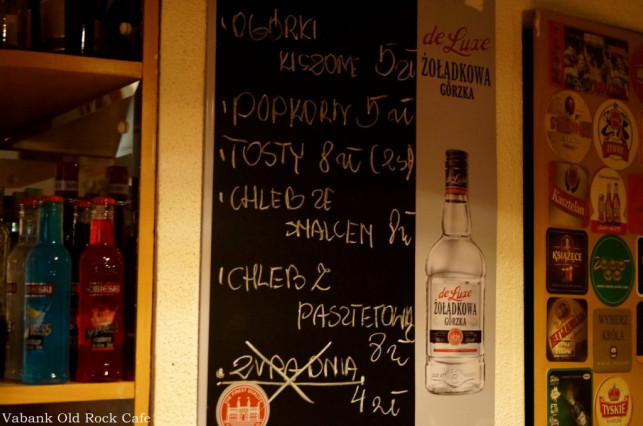 OGÓRKI
KISZONE 5 zł
POPKORN 5 zł
TOSTY 8 zł (2s)
CHLEB ZE
SMALCEM 8 zł
CHLEB Z
PASZTETOWĄ
8 zł
ZUPA DNIA
4 zł
de Luxe
ŻOŁĄDKOWA
GÓRZKA
de Luxe
ŻOŁĄDKOWA
GÓRZKA
Kasztelan
KSIĄŻĘCE
WYBIERZ
KRÓLA
TYSKIE
Vabank Old Rock Cafe